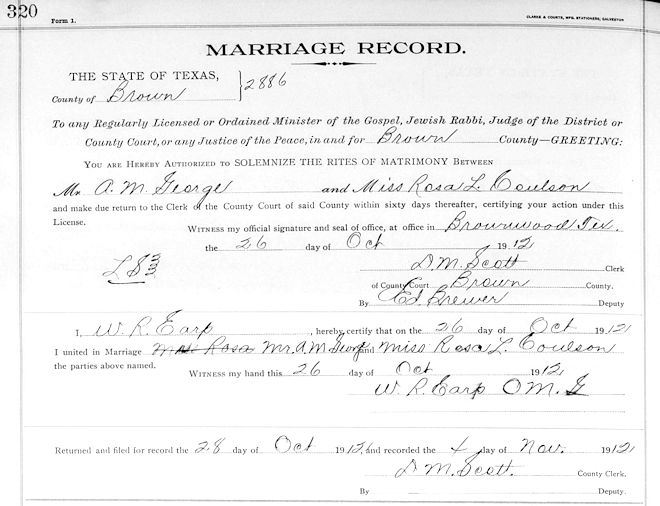 320
Form 1.
CLARKE & COURTS, MFG. STATIONERS, GALVESTON
MARRIAGE RECORD.
THE STATE OF TEXAS, } 2886
County of Brown
To any Regularly Licensed or Ordained Minister of the Gospel, Jewish Rabbi, Judge of the District or
County Court, or any Justice of the Peace, in and for Brown County—GREETING:
YOU ARE HEREBY AUTHORIZED TO SOLEMNIZE THE RITES OF MATRIMONY BETWEEN
Mr. A. M. George and Miss Rosa L. Coulson
and make due return to the Clerk of the County Court of said County within sixty days thereafter, certifying your action under this
License.
WITNESS my official signature and seal of office, at office in Brownwood Tex.
the 26 day of Oct 1912
D. M. Scott Clerk
of County Court Brown County.
By Ed Brewer Deputy
I, W. R. Earp, hereby certify that on the 26 day of Oct 1912
I united in Marriage Miss Rosa Mr. A. M. George and Miss Rosa L. Coulson
the parties above named.
WITNESS my hand this 26 day of Oct 1912
W. R. Earp O M. G
Returned and filed for record the 28 day of Oct 1912, and recorded the 4 day of Nov. 1912
D. M. Scott. County Clerk.
By Deputy.